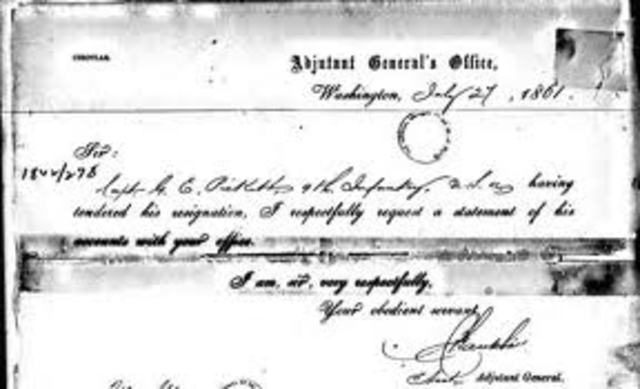 CIRCULAR.
Adjutant General's Office,
Washington, July 27, 1861.
Sir:
Capt. G. E. Pickett, 9th Infantry, U.S.A. having
tendered his resignation, I respectfully request a statement of his
accounts with your office.
I am, sir, very respectfully,
Your obedient servant,
Adjutant General.